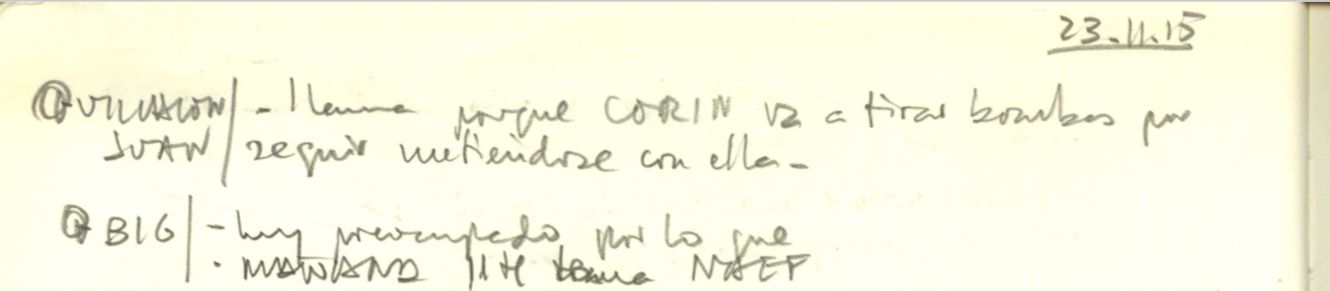 23.11.15
VILLALON/ - llama porque CORIN va a tirar bombas por
JUAN / seguir metiéndose con ella -
BIG / - muy preocupado por lo que
. MAÑANA 11H llama NAEF